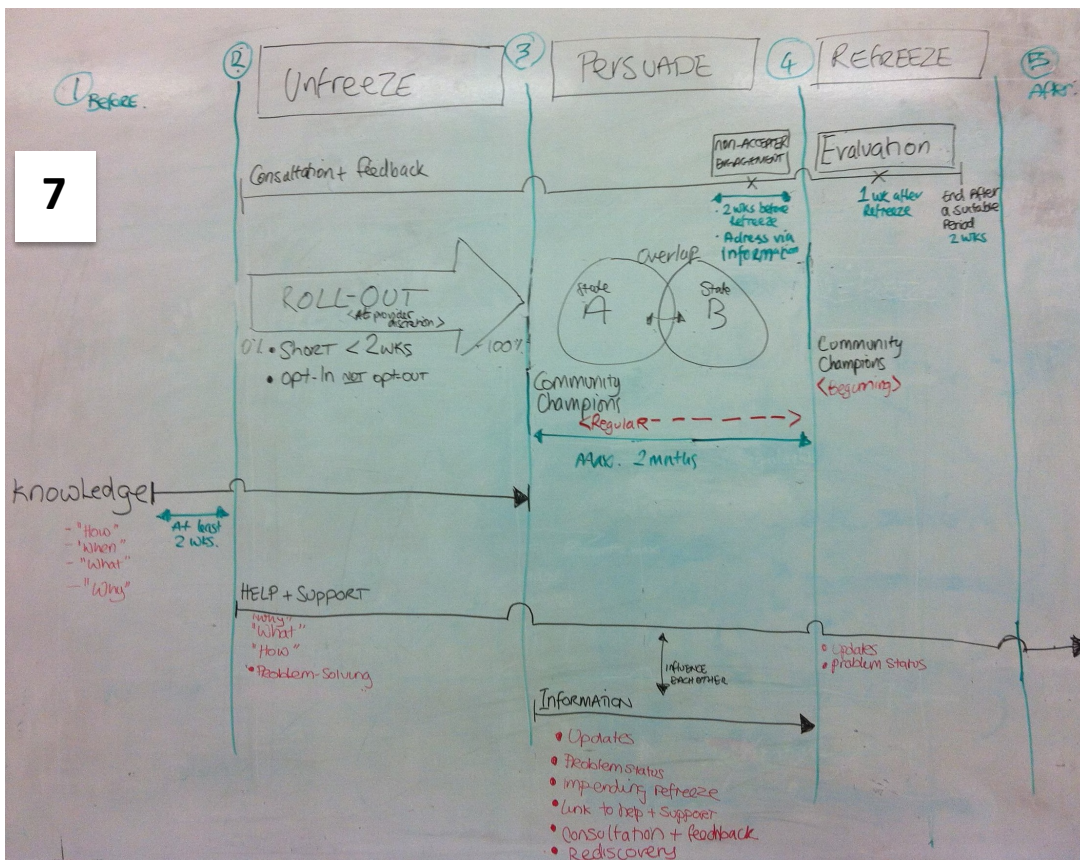 1 Before.
2
Unfreeze
3
PERSUADE
4
REFREEZE
5
After.
7
Consultation + feedback
NON-ACCEPTER
ENGAGEMENT
Evaluation
• 2 wks before
Refreeze
• Adress via
Information
1 wk after
Refreeze
End After
a Suitable
Period
2 wks
ROLL-OUT
<At provider
discretion>
0%
100%
• SHORT < 2 WKS
• Opt-In NOT opt-out
Overlap
State
A
State
B
Community
Champions
<Regular - - - >
Max. 2 mnths
Community
Champions
<Beginning>
Knowledge
At least
2 wks.
- "How"
- "When"
- "What"
- "Why"
HELP + SUPPORT
"Why"
"What"
"How"
• Problem-Solving
INFLUENCE
EACH OTHER
• Updates
• problem status
INFORMATION
• Updates
• Problem status
• Impending Refreeze
• Link to help + Support
• Consultation + feedback
• Rediscovery